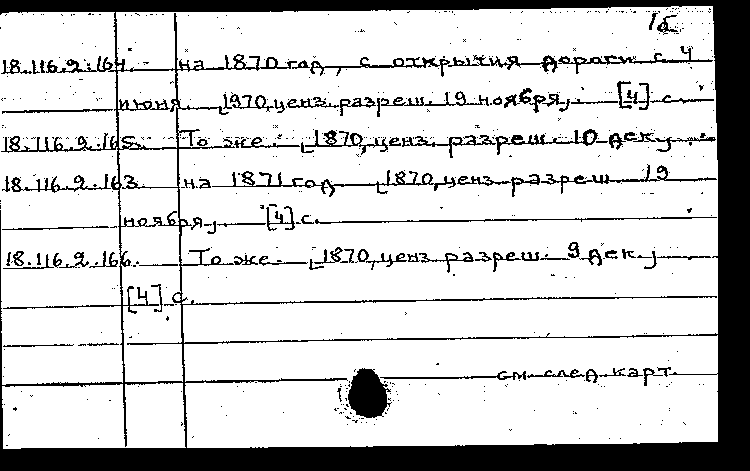 1б
18.116.2.164. на 1870 год, с открытия дороги с 4
июня. [1970, ценз. разреш. 19 ноября]. [4] с.
18.116.2.165. То же. [1870, ценз. разреш. 10 дек.]
18.116.2.163. на 1871 год [1870, ценз. разреш 19
ноября]. [4] с.
18.116.2.166. То же. [1870, ценз. разреш. 9 дек.]
[4] с.
см. след. карт.